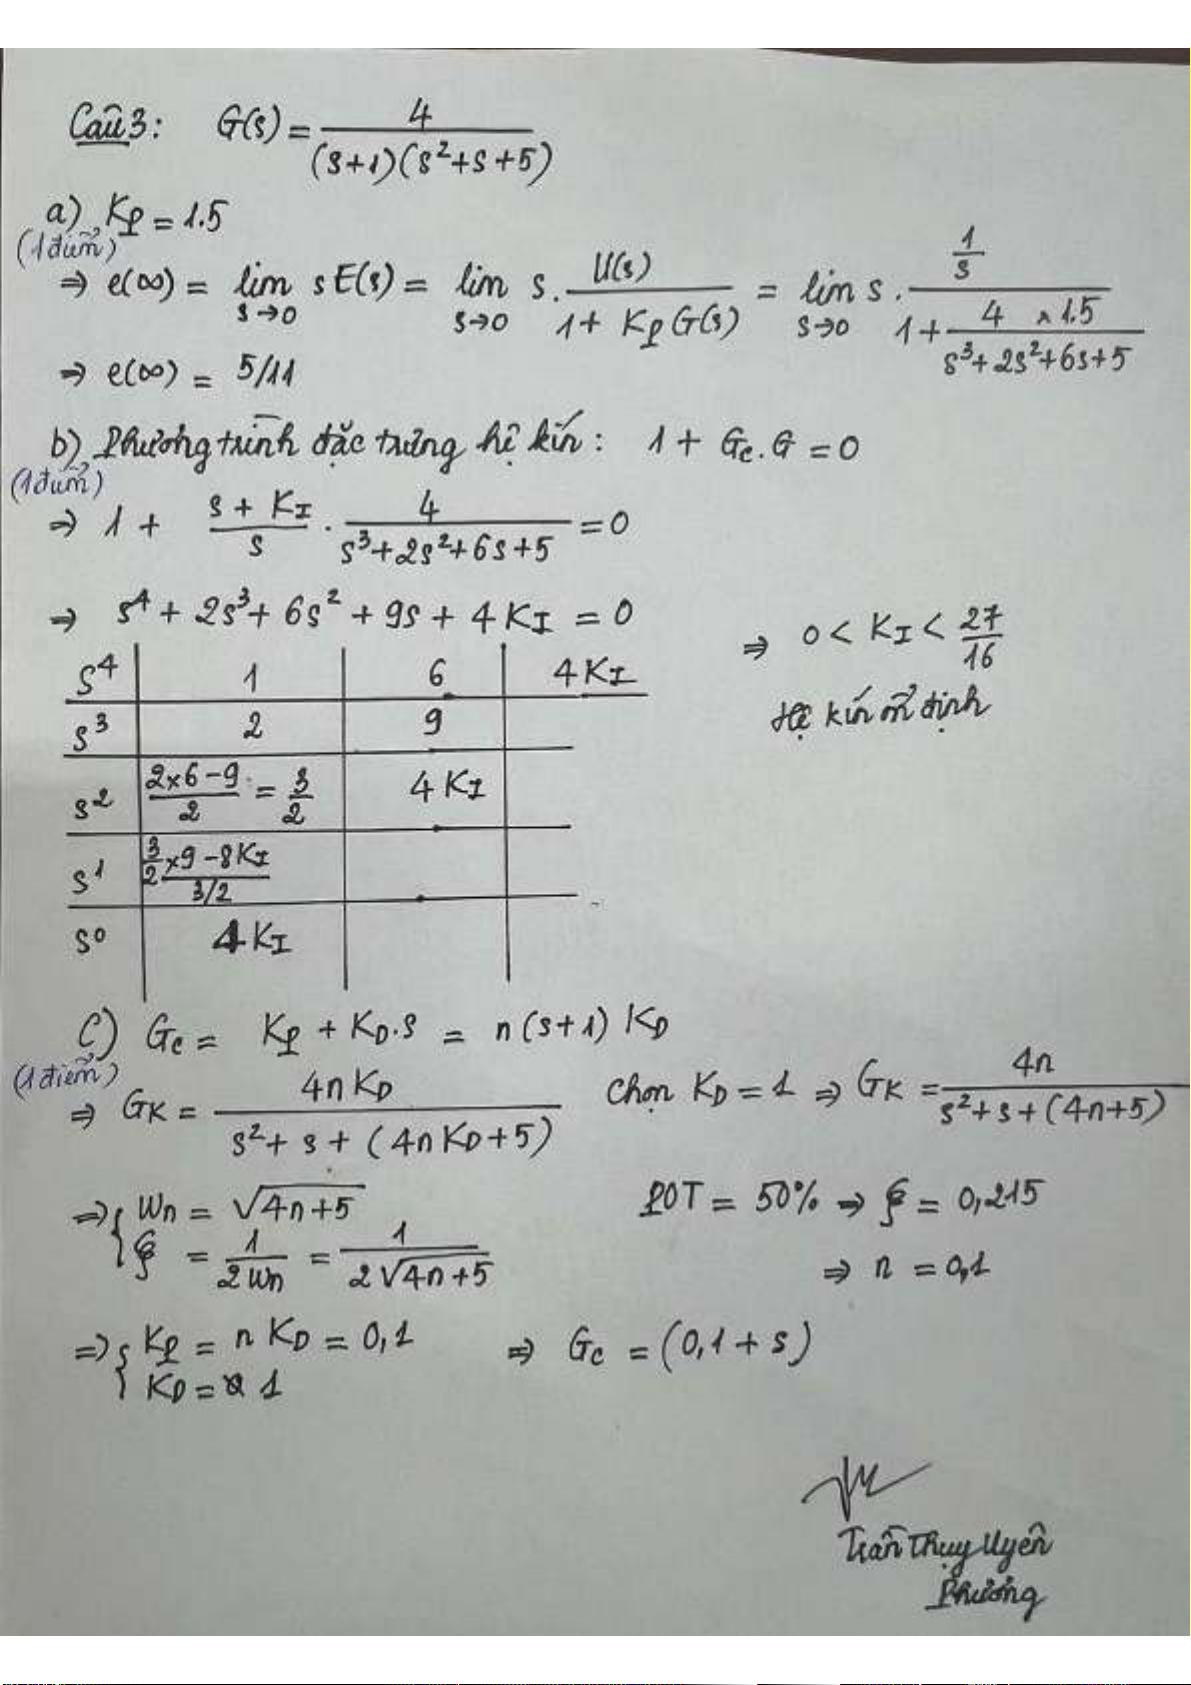 Câu 3: G(s) = 4 / (s+1)(s²+s+5)
a) Kp = 1.5
(1 điểm)
⇒ e(∞) = lim s→0 sE(s) = lim s→0 s. U(s) / 1 + Kp G(s) = lim s→0 s. (1/s) / (1 + (4 x 1.5) / (s³+2s²+6s+5))
⇒ e(∞) = 5/11
b) Phương trình đặc trưng hệ kín: 1 + Gc.G = 0
(1 điểm)
⇒ 1 + (s + KI)/s . 4 / (s³+2s²+6s+5) = 0
⇒ s⁴ + 2s³ + 6s² + 9s + 4KI = 0
s⁴ 1 6 4KI
s³ 2 9
s² (2x6-9)/2 = 3/2 4KI
s¹ (3/2 x9 - 8KI) / 3/2
s⁰ 4KI
⇒ 0 < KI < 27/16
Hệ kín ổn định
c) Gc = Kp + KD.s = n(s+1) KD
(1 điểm)
⇒ GK = 4nKD / (s² + s + (4nKD+5))
Chọn KD = 1 ⇒ GK = 4n / (s²+s+(4n+5))
⇒ { Wn = √(4n+5)
ξ = 1/(2Wn) = 1/(2√(4n+5))
POT = 50% ⇒ ξ = 0,215
⇒ n = 0,1
⇒ { Kp = n KD = 0,1
KD = 1
⇒ Gc = (0,1 + s)
Trần Thụy Uyên
Phương